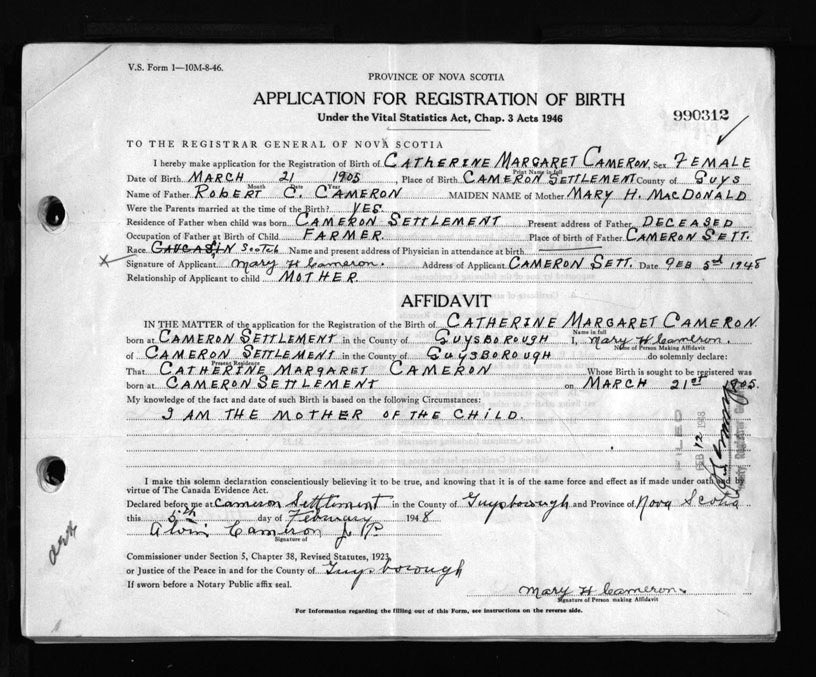 V.S. Form 1—10M-8-46.
PROVINCE OF NOVA SCOTIA
APPLICATION FOR REGISTRATION OF BIRTH
Under the Vital Statistics Act, Chap. 3 Acts 1946
990312
TO THE REGISTRAR GENERAL OF NOVA SCOTIA
I hereby make application for the Registration of Birth of CATHERINE MARGARET CAMERON, Sex FEMALE
Print Name in full
Date of Birth MARCH 21 1905, Place of Birth CAMERON SETTLEMENT County of GUYS
Month Date Year
Name of Father ROBERT C. CAMERON MAIDEN NAME of Mother MARY H. MACDONALD
Were the Parents married at the time of the Birth? YES.
Residence of Father when child was born CAMERON SETTLEMENT Present address of Father DECEASED
Occupation of Father at Birth of Child FARMER. Place of birth of Father CAMERON SETT.
Race Scotch Name and present address of Physician in attendance at birth
Signature of Applicant Mary H Cameron. Address of Applicant CAMERON SETT. Date FEB 5th 1948
Relationship of Applicant to child MOTHER.
AFFIDAVIT
IN THE MATTER of the application for the Registration of the Birth of CATHERINE MARGARET CAMERON
Name in full
born at CAMERON SETTLEMENT in the County of GUYSBOROUGH I, Mary H Cameron.
Present Residence Name of Person Making Affidavit
of CAMERON SETTLEMENT in the County of GUYSBOROUGH do solemnly declare:
That CATHERINE MARGARET CAMERON Whose Birth is sought to be registered was
born at CAMERON SETTLEMENT on MARCH 21st 1905.
My knowledge of the fact and date of such Birth is based on the following Circumstances:
I AM THE MOTHER OF THE CHILD.
FILED
FEB 12 1948
I make this solemn declaration conscientiously believing it to be true, and knowing that it is of the same force and effect as if made under oath and by
virtue of The Canada Evidence Act.
Declared before me at Cameron Settlement in the County of Guysborough and Province of Nova Scotia
this 5th day of February 1948
Alvin Cameron J P.
Signature of
Commissioner under Section 5, Chapter 38, Revised Statutes, 1923
or Justice of the Peace in and for the County of Guysborough
If sworn before a Notary Public affix seal.
Mary H Cameron.
Signature of Person making Affidavit
For Information regarding the filling out of this Form, see instructions on the reverse side.